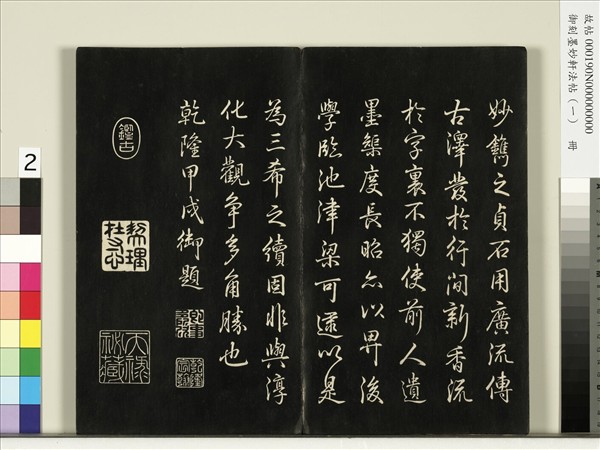 故帖 000190N000000000
御刻墨妙軒法帖（一） 冊
妙鐫之貞石用廣流傳
古澤發於行間新香流
於字裏不獨使前人遺
墨榘度長昭亦以畀後
學臨池津梁可遂以是
為三希之續固非與淳
化大觀爭多角勝也
乾隆甲戌御題
乾隆宸翰
鑑古
2